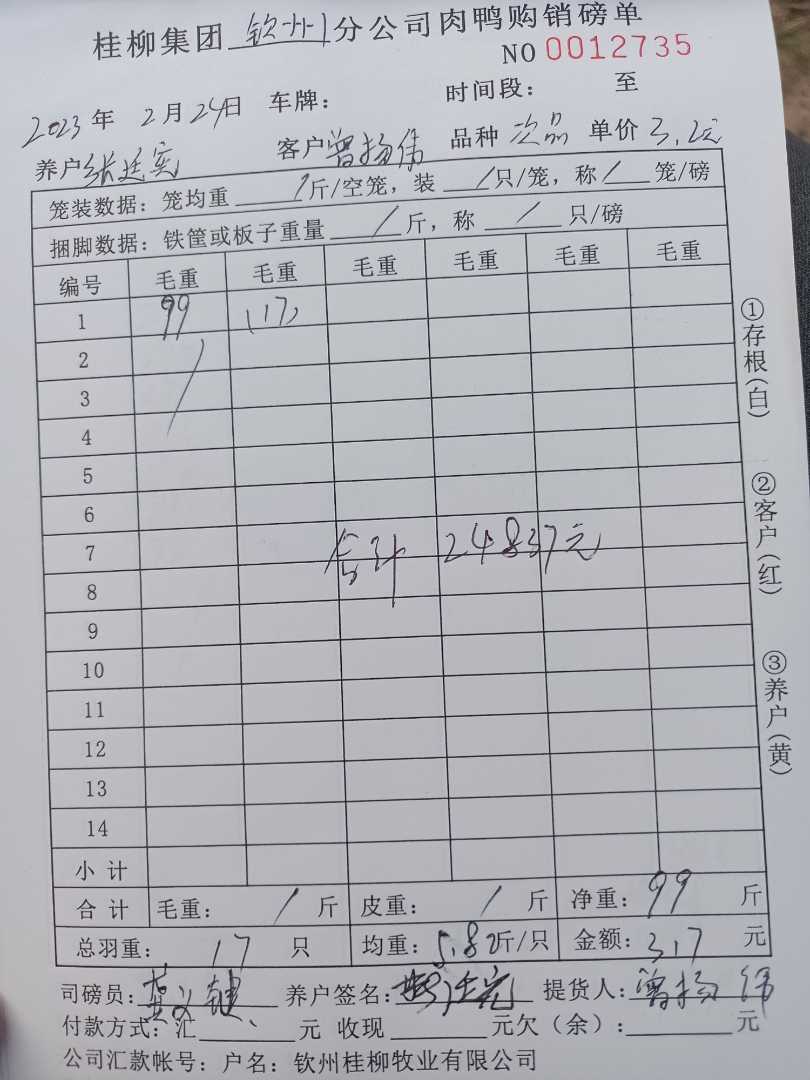 桂柳集团 钦州 分公司肉鸭购销磅单
NO 0012735
2023年 2月 24日 车牌： 时间段： 至
养户 张廷宪 客户 曾扬伟 品种 次品 单价 3.2元
笼装数据：笼均重 / 斤/空笼，装 / 只/笼，称 / 笼/磅
捆脚数据：铁筐或板子重量 / 斤，称 / 只/磅
编号 毛重 毛重 毛重 毛重 毛重 毛重
1 99 (17)
2
3
4
5
6
7 合计 24837元
8
9
10
11
12
13
14
小计
合计 毛重： / 斤 皮重： / 斤 净重：99 斤
总羽重： 17 只 均重：5.82斤/只 金额：317 元
司磅员： 养户签名： 提货人：曾扬伟
付款方式：汇 元 收现 元欠（余）： 元
公司汇款帐号：户名：钦州桂柳牧业有限公司
①存根（白）
②客户（红）
③养户（黄）